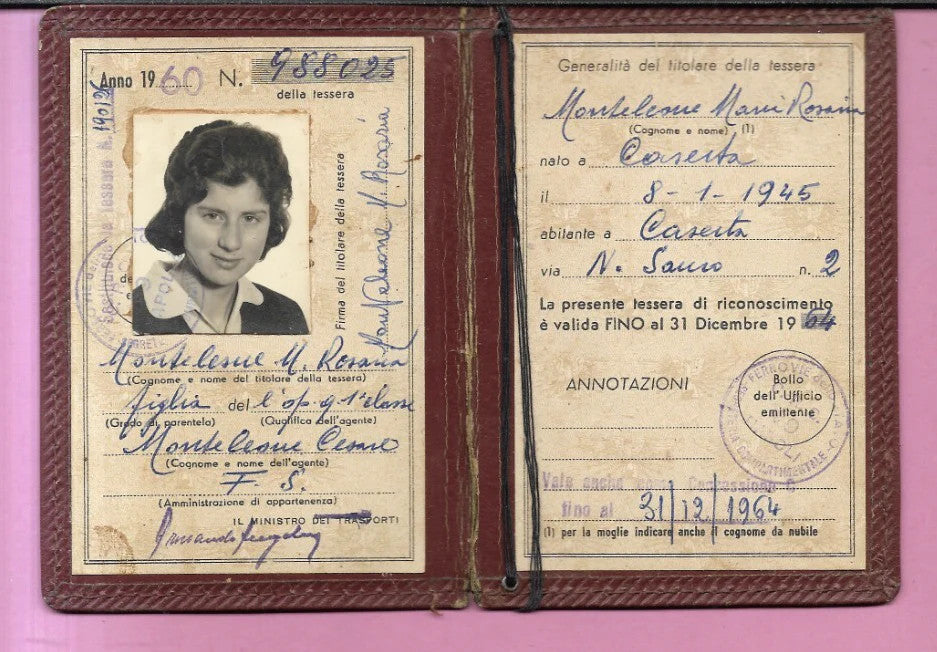 Anno 1960 N. 988025
della tessera
Firma del titolare della tessera
Monteleone M. Rosaria
Monteleone M. Rosaria
(Cognome e nome del titolare della tessera)
figlia del l'op. q. 1ª classe
(Grado di parentela) (Qualifica dell'agente)
Monteleone Cesare
(Cognome e nome dell'agente)
F. S.
(Amministrazione di appartenenza)
IL MINISTRO DEI TRASPORTI
Generalità del titolare della tessera
Monteleone Maria Rosaria
(Cognome e nome) (1)
nato a Caserta
il 8-1-1945
abitante a Caserta
via N. Sauro n. 2
La presente tessera di riconoscimento
è valida FINO al 31 Dicembre 1964
ANNOTAZIONI
FERROVIE dello
Bollo
dell'Ufficio
emittente
COMPARTIMENTALE
Vale anche come Concessione C
fino al 31/12/1964
(1) per la moglie indicare anche il cognome da nubile